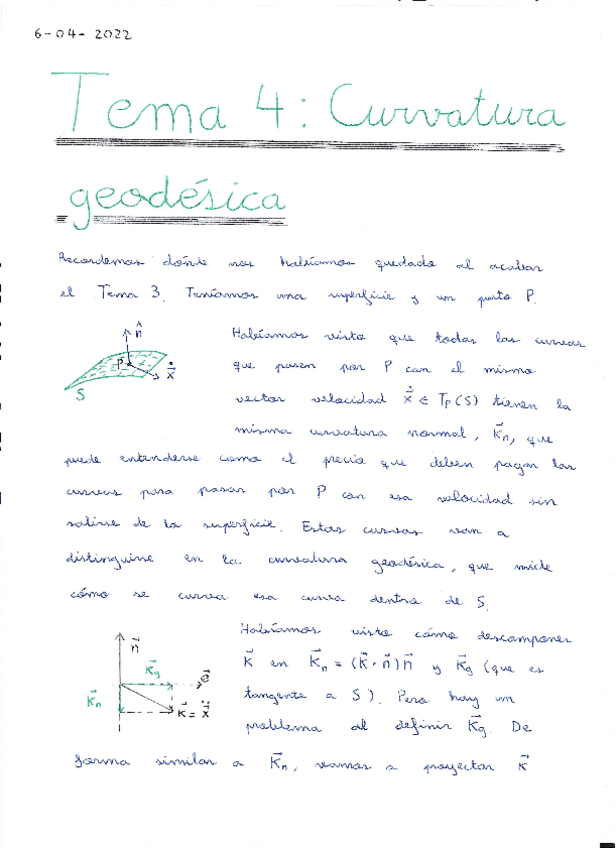 6-04-2022
Tema 4: Curvatura
geodésica
Recordemos dónde nos habíamos quedado al acabar
el Tema 3. Teníamos una superficie y un punto P.
n̂
P
ẋ⃗
S
Habíamos visto que todas las curvas
que pasen por P con el mismo
vector velocidad ẋ⃗ ∈ Tp(S) tienen la
misma curvatura normal, K⃗n, que
puede entenderse como el precio que deben pagar las
curvas para pasar por P con esa velocidad sin
salirse de la superficie. Estas curvas van a
distinguirse en la curvatura geodésica, que mide
cómo se curva esa curva dentro de S.
Habíamos visto cómo descomponer
K⃗ en K⃗n = (K⃗ · n⃗)n⃗ y K⃗g (que es
tangente a S). Pero hay un
problema al definir K⃗g. De
n⃗
K⃗g
e⃗
K⃗n
K⃗ = ẍ⃗
forma similar a K⃗n, vamos a proyectar K⃗